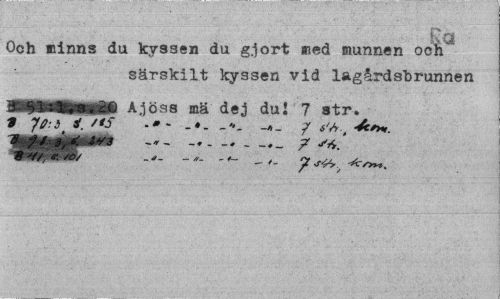 Ra
Och minns du kyssen du gjort med munnen och
särskilt kyssen vid lagårdsbrunnen
B 51:1, s. 20 Ajöss mä dej du! 7 str.
B 70:3, s. 185 -"- -"- -"- -"- 7 str., kom.
B 98:3, s. 343 -"- -"- -"- -"- 7 str.
B 41, s. 101 -"- -"- -"- -"- 7 str., kom.